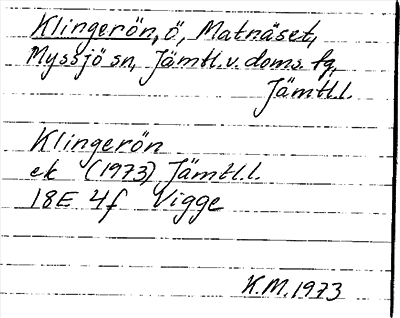 Klingerön, ö, Matnäset,
Myssjö sn, Jämtl.v. doms. fg,
Jämtl.l.
Klingerön
ek (1973) Jämtl.l.
18E 4f Vigge
K.M. 1973